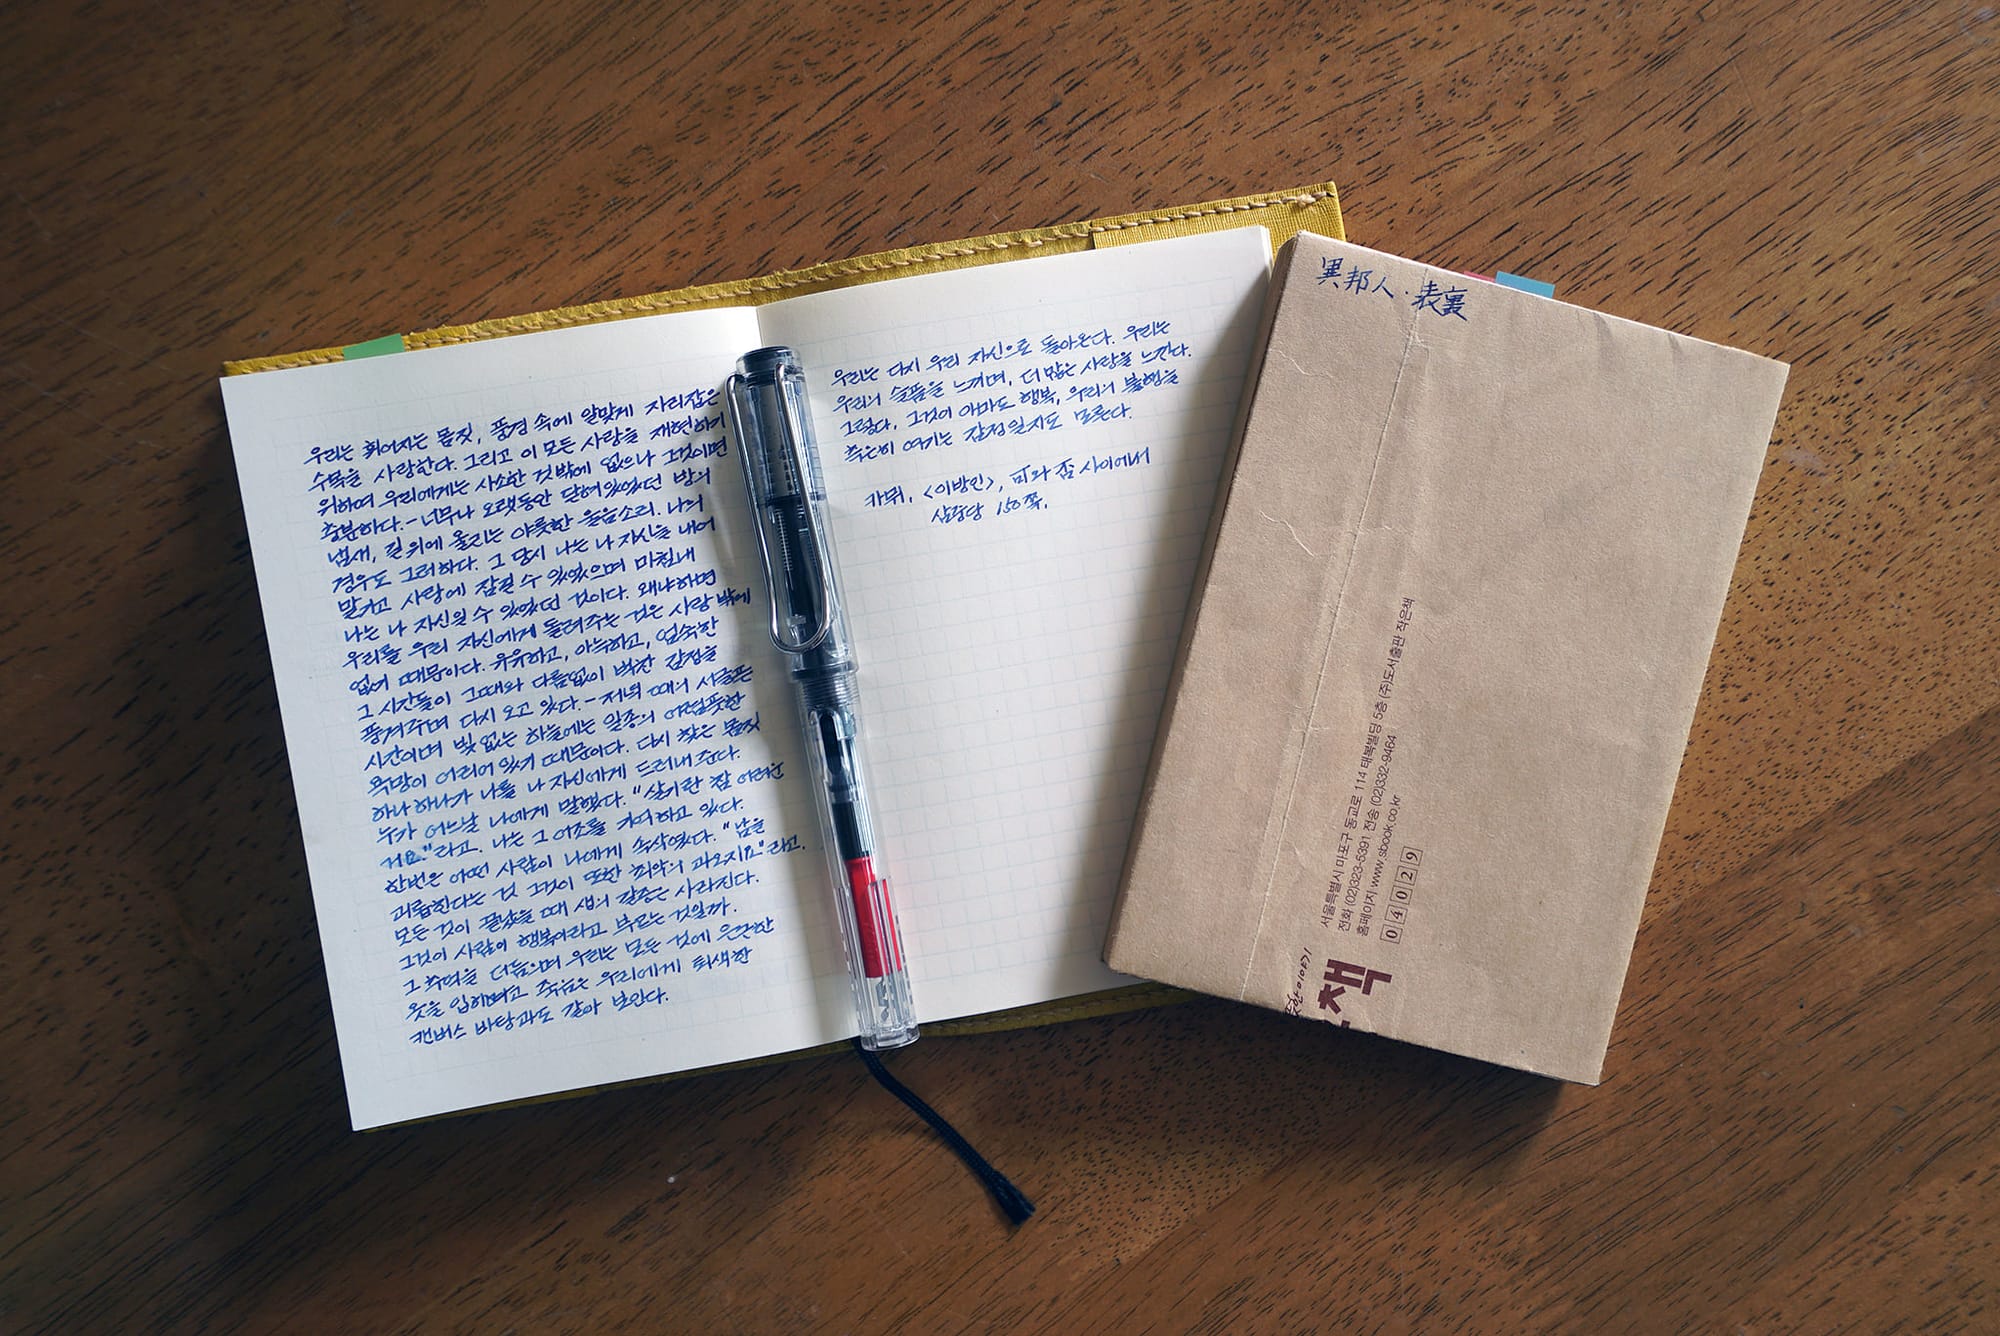 우리는 휘어지는 몸짓, 풍경 속에 알맞게 자리잡은
수목을 사랑한다. 그리고 이 모든 사랑을 재현하기
위하여 우리에게는 사소한 것 밖에 없으나 그것이면
충분하다. - 너무나 오랫동안 닫혀 있었던 방의
냄새, 길 위에 울리는 야릇한 울음소리. 나의
경우도 그러하다. 그 당시 나는 나 자신을 내어
맡기고 사랑에 잠길 수 있었으며 마침내
나는 나 자신일 수 있었던 것이다. 왜냐하면
우리를 우리 자신에게 돌려주는 것은 사랑 밖에
없기 때문이다. 유유하고, 아늑하고, 엄숙한
그 시간들이 그때와 다름없이 벅찬 감정을
풍겨주며 다시 오고 있다. - 저녁 때의 서글픈
시간이며 빛 없는 하늘에는 일종의 어렴풋한
욕망이 어리어 있기 때문이다. 다시 찾은 몸짓
하나 하나가 나를 나 자신에게 드러내 준다.
누가 어느날 나에게 말했다. "살기란 참 어려운
거요." 라고. 나는 그 어조를 기억하고 있다.
한번은 어떤 사람이 나에게 속삭였다. "남을
괴롭힌다는 것 그것이 또한 최악의 과오지요" 라고.
모든 것이 끝났을 때 생의 갈증은 사라진다.
그것이 사람이 행복이라고 부르는 것일까.
그 추억을 더듬으며 우리는 모든 것에 은근한
옷을 입히려고 죽음은 우리에게 퇴색한
캔버스 바탕과도 같아 보인다.
우리는 다시 우리 자신으로 돌아온다. 우리는
우리의 슬픔을 느끼며, 더 많은 사랑을 느낀다.
그렇다. 그것이 아마도 행복, 우리의 불행을
측은히 여기는 감정일지도 모른다.
카뮈, <이방인>, 可와 否 사이에서
삼중당 150쪽.
異邦人·表裏
서울특별시 마포구 동교로 114 태복빌딩 5층 (주)도서출판 작은책
전화 (02)323-5391 전송 (02)332-9464
홈페이지 www.sbook.co.kr
04029
책